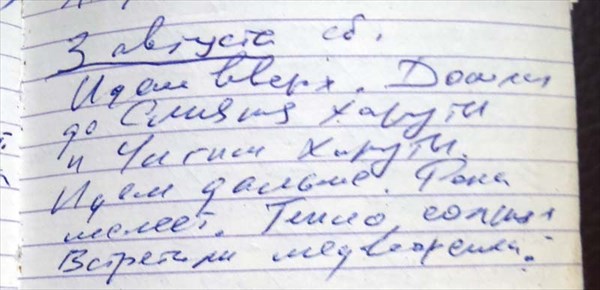 3 августа сб.
Идем вверх. Дошли
до Слияния Харуты
и Харуты.
Идем дальше. Река
мелеет. Тепло, солнце
Встретили медвежонка.